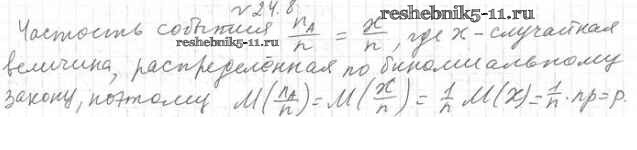 №24.8
reshebnik5-11.ru
Частость события n_A/n = x/n, где x - случайная
reshebnik5-11.ru
величина, распределённая по биномиальному
закону, поэтому M(n_A/n) = M(x/n) = 1/n M(x) = 1/n · np = p.